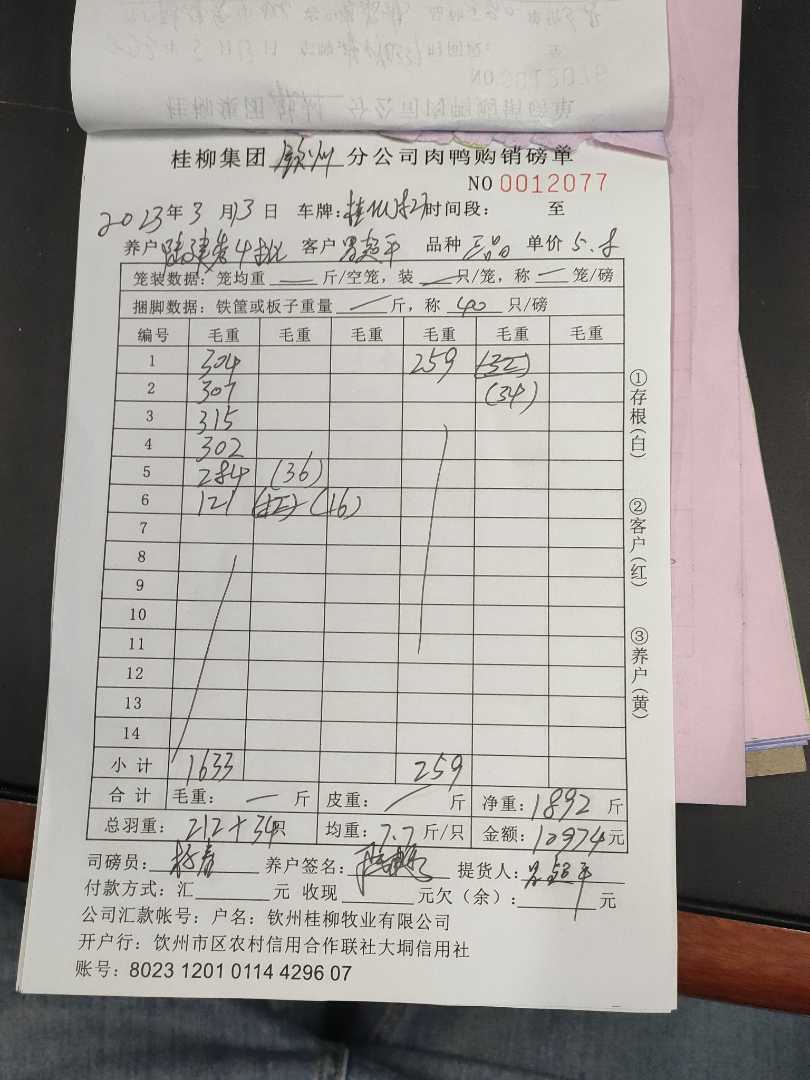 桂柳集团 钦州 分公司肉鸭购销磅单
NO 0012077
2023年3月13日 车牌: 时间段: 至
养户 4批 客户 超平 品种 三品 单价 5.8
笼装数据: 笼均重 — 斤/空笼, 装 — 只/笼, 称 — 笼/磅
捆脚数据: 铁筐或板子重量 — 斤, 称 40 只/磅
编号 毛重 毛重 毛重 毛重 毛重 毛重
1 304 259 (32)
2 307 (34)
3 315
4 302
5 284 (36)
6 121 (16)
7
8
9
10
11
12
13
14
小计 1633 259
合计 毛重: — 斤 皮重: 斤 净重: 1892 斤
总羽重: 212+34只 均重: 7.7 斤/只 金额: 10974元
司磅员: 养户签名: 提货人: 超平
付款方式: 汇 元 收现 元欠(余): 元
公司汇款帐号: 户名: 钦州桂柳牧业有限公司
开户行: 饮州市区农村信用合作联社大垌信用社
账号: 8023 1201 0114 4296 07
①存根(白)
②客户(红)
③养户(黄)